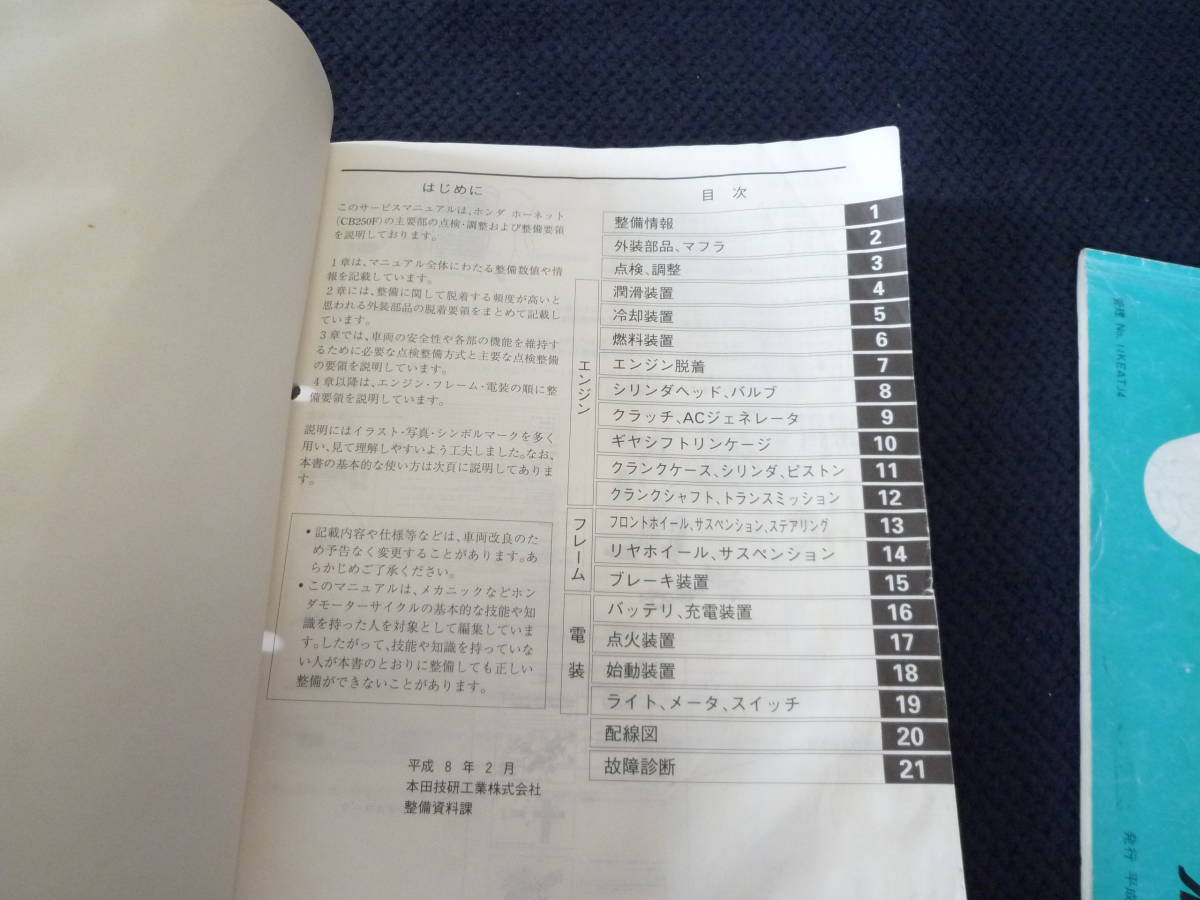 はじめに
このサービスマニュアルは、ホンダ ホーネット
(CB250F)の主要部の点検・調整および整備要領
を説明しております。
1章は、マニュアル全体にわたる整備数値や情
報を記載しています。
2章には、整備に関して脱着する頻度が高いと
思われる外装部品の脱着要領をまとめて記載し
ています。
3章では、車両の安全性や各部の機能を維持す
るために必要な点検整備方式と主要な点検整備
の要領を説明しています。
4章以降は、エンジン・フレーム・電装の順に整
備要領を説明しています。
説明にはイラスト・写真・シンボルマークを多く
用い、見て理解しやすいよう工夫しました。なお、
本書の基本的な使い方は次頁に説明してありま
す。
•記載内容や仕様等などは、車両改良のた
め予告なく変更することがあります。あ
らかじめご了承ください。
•このマニュアルは、メカニックなどホン
ダモーターサイクルの基本的な技能や知
識を持った人を対象として編集していま
す。したがって、技能や知識を持っていな
い人が本書のとおりに整備しても正しい
整備ができないことがあります。
平成 8 年 2 月
本田技研工業株式会社
整備資料課
目 次
整備情報 1
外装部品、マフラ 2
点検、調整 3
エンジン
潤滑装置 4
冷却装置 5
燃料装置 6
エンジン脱着 7
シリンダヘッド、バルブ 8
クラッチ、ACジェネレータ 9
ギヤシフトリンケージ 10
クランクケース、シリンダ、ピストン 11
クランクシャフト、トランスミッション 12
フレーム
フロントホイール、サスペンション、ステアリング 13
リヤホイール、サスペンション 14
ブレーキ装置 15
電装
バッテリ、充電装置 16
点火装置 17
始動装置 18
ライト、メータ、スイッチ 19
配線図 20
故障診断 21
管理 No. 11KEATJ4
発行 平成